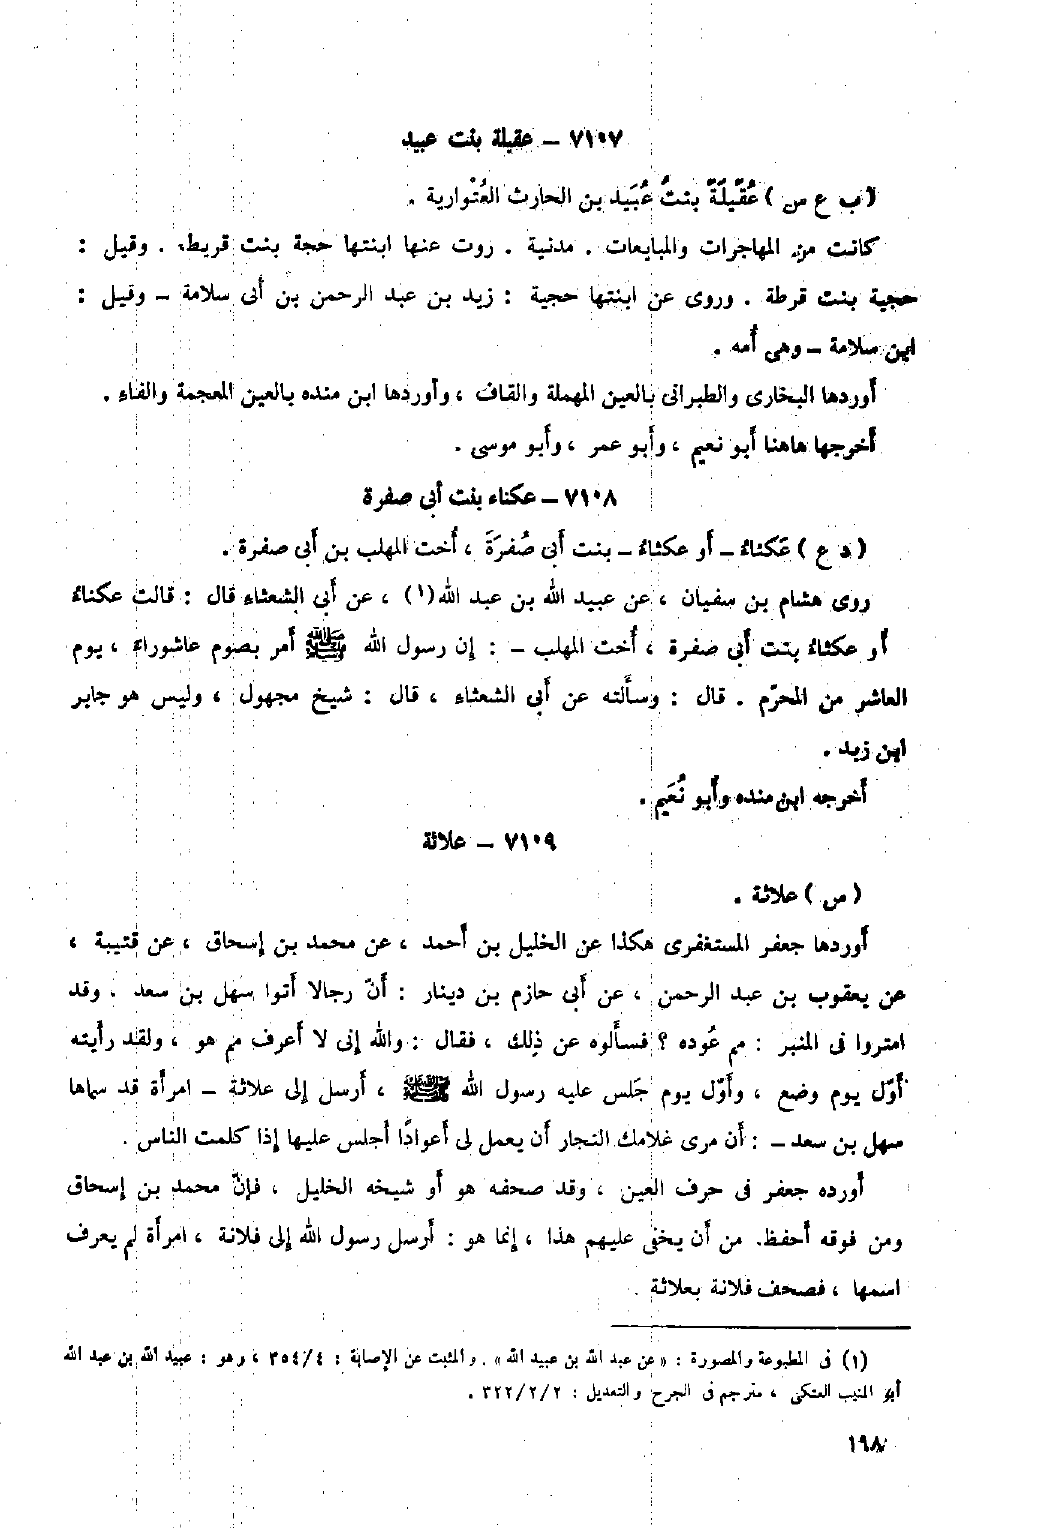 ٧١٠٧ - عقيلة بنت عبيد
(ب ع س) عُقَيْلَةُ بنتُ عُبَيد بن الحارث العُتْوارية .
كانت من المهاجرات والمبايعات . مدنية . روت عنها ابنتها حجة بنت قريط . وقيل :
حجية بنت قرطة . وروى عن ابنتها حجية : زيد بن عبد الرحمن بن أبى سلامة - وقيل :
ابن سلامة - وهى أُمه .
أوردها البخارى والطبرانى بالعين المهملة والقاف ، وأوردها ابن منده بالغين المعجمة والفاء .
أخرجها هاهنا أبو نعيم ، وأبو عمر ، وأبو موسى .
٧١٠٨ - عكناء بنت أبى صفرة
(د ع) عَكناءُ - أو عكثاءُ - بنت أبى صُفرَةَ ، أُخت المهلب بن أبى صفرة .
روى هشام بن سفيان ، عن عبيد الله بن عبد الله(١) ، عن أبى الشعثاء قال : قالت عكناءُ
أو عكثاءُ بنت أبى صفرة ، أُخت المهلب - : إن رسول الله ﷺ أمر بصوم عاشوراءَ ، يوم
العاشر من المحرّم . قال : وسألته عن أبى الشعثاء ، قال : شيخ مجهول ، وليس هو جابر
ابن زيد .
أخرجه ابن منده وأبو نُعَيم .
٧١٠٩ - علاثة
(س) علاثة .
أوردها جعفر المستغفرى هكذا عن الخليل بن أحمد ، عن محمد بن إسحاق ، عن قتيبة ،
عن يعقوب بن عبد الرحمن ، عن أبى حازم بن دينار : أنّ رجالا أتوا سهل بن سعد . وقد
امتروا فى المنبر : مم عُوده ؟ فسألوه عن ذلك ، فقال : والله إنى لا أعرف مم هو ، ولقد رأيته
أوّل يوم وضع ، وأوّل يوم جَلس عليه رسول الله ﷺ ، أرسل إلى علاثة - امرأة قد سماها
سهل بن سعد - : أن مرى غلامك النجار أن يعمل لى أعوادًا أجلس عليها إذا كلمت الناس .
أورده جعفر فى حرف العين ، وقد صحفه هو أو شيخه الخليل ، فإنّ محمد بن إسحاق
ومن فوقه أحفظ من أن يخفى عليهم هذا ، إنما هو : أرسل رسول الله إلى فلانة ، امرأة لم يعرف
اسمها ، فصحف فلانة بعلاثة .
(١) فى المطبوعة والمصورة : «عن عبد الله بن عبيد الله» . والمثبت عن الإصابة : ٣٥٤/٤ ، وهو : عبيد الله بن عبد الله
أبو المنيب العتكى ، مترجم فى الجرح والتعديل : ٣٢٢/٢/٢ .
١٩٨